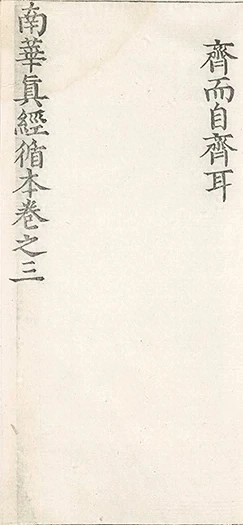 齊而自齊耳
南華眞經循本卷之三